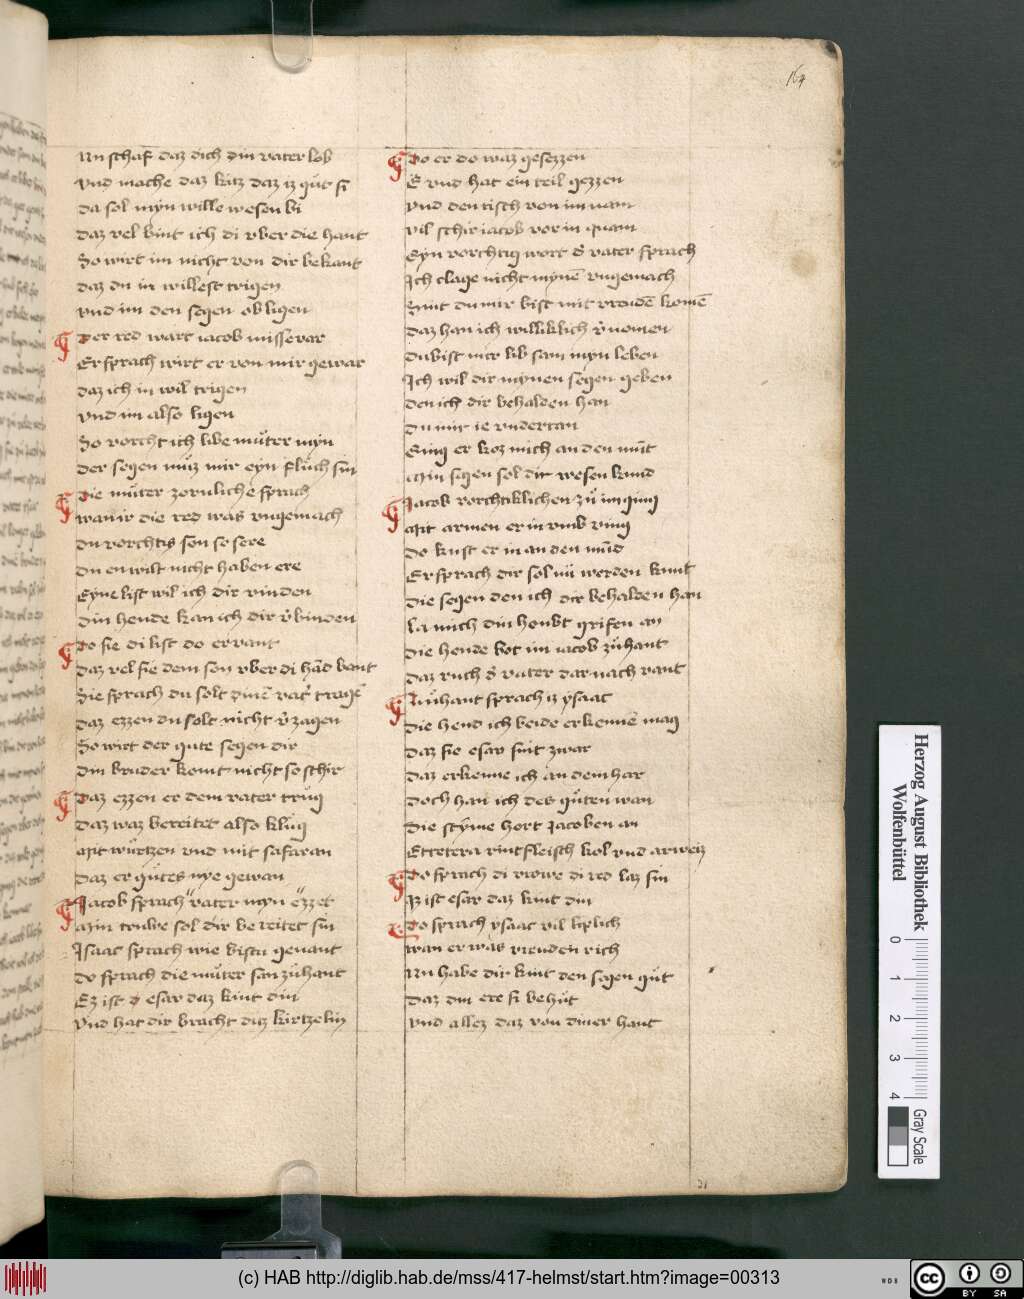 164
Nu schaf daz dich din vater lob
vnd mache daz kitz daz iz gůt si
da sol myn wille wesen bi
daz vel bint ich di vber die hant
So wirt im nicht von dir bekant
daz du in willest trigen
vnd im den segen ob ligen
Der red wart iacob missevar
Er sprach wirt er von mir gewar
daz ich in wil trigen
vnd im also ligen
So vorcht ich libe můter myn
der segen můz mir eyn flůch sin
Die můter zornliche sprach
wan ir die red was vngemach
du vorchtis son so sere
du en wilt nicht haben ere
Eyne list wil ich dir vinden
din hende kan ich dir v̾binden
Do sie di list do ervant
daz vel sie dem son vber di hãd bant
Sie sprach du solt dinẽ vat̾ tragẽ
daz ezzen du solt nicht v̾zagen
So wirt der gute segen dir
din bruder komt nicht so schir
Daz ezzen er dem vater trůg
daz waz bereitet also klůg
Mit wůrtzen vnd mit safaran
daz er gůtes nye gewan
Jacob sprach vater myn ezzet
Mŷn truwe sol dir bereitet sin
Isaac sprach wie bistu genant
do sprach die můter san zůhant
Ez ist d̾ esav daz kint din
vnd hat dir bracht diz kitzelin
Do er do waz gesezzen
E vnd hat ein teil gezzen
vnd den tisch von im nam
vil schir iacob vor in quam
Eyn vorchtig wort d̾ vater sprach
Ich clage nicht mynẽ vngemach
Sint du mir bist mit vroudẽ komẽ
daz han ich williklich v̾nomen
du bist mir lib sam myn leben
Ich wil dir mynen segen geben
den ich dir behalden han
du mir ie vndertan
Ging er koz mich an den mũt
Min segen sol dir wesen kund
Jacob vorchtiklichen zů im ging
Mit armen er in vmb ving
do kust er in an den mũd
Er sprach dir sol nů werden kunt
die segen den ich dir behalden han
la mich din houbt grifen an
die hende bot im iacob zůhant
daz ruch d̾ vater dar nach vant
Zůhant sprach iz ysaac
die hend ich beide erkennẽ mag
daz sie esav sint zwar
daz erkenne ich an dem har
doch han ich des gůten wan
die stŷme hort Jacoben an
Etcetera rintfleisch kol vnd arweiz
Do sprach di vrowe di red laz sin
Iz ist esav daz kint din
Do sprach ysaac vil liplich
wan er was vreuden rich
Nu habe dir kint den segen gůt
daz din ere si behůt
vnd allez daz von diner hant
21
Herzog August Bibliothek
Wolfenbüttel
0 1 2 3 4
Gray Scale
(c) HAB http://diglib.hab.de/mss/417-helmst/start.htm?image=00313
WDB
cc BY SA